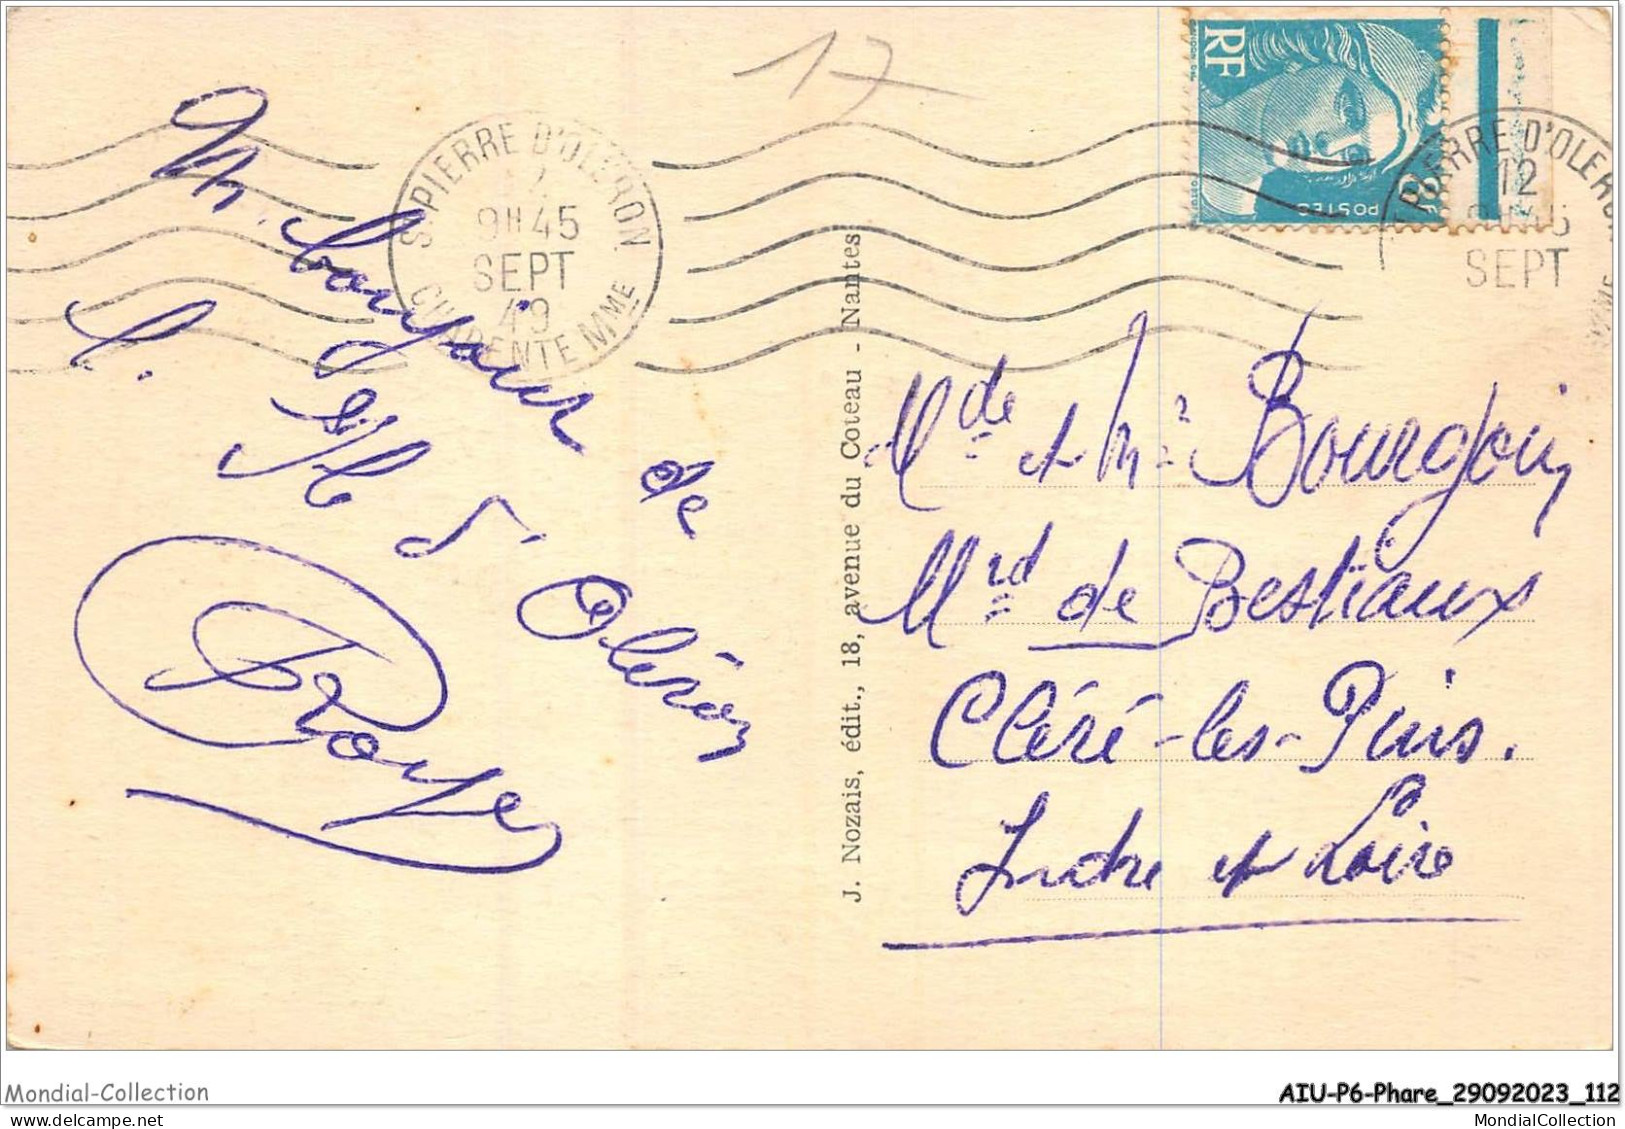 17
RF
POSTES
St PIERRE D'OLERON
12
9H45
SEPT
49
CHARENTE Mme
PIERRE D'OLERON
12
9H45
SEPT
bonjour de
l'Ile d'Oléron
Royer
J. Nozais, édit., 18, avenue du Coteau - Nantes
Mde et Mr Bourgoin
Mrd de Bestiaux
Cléré-les-Pins.
Indre et Loire
Mondial-Collection
AIU-P6-Phare_29092023_112
MondialCollection